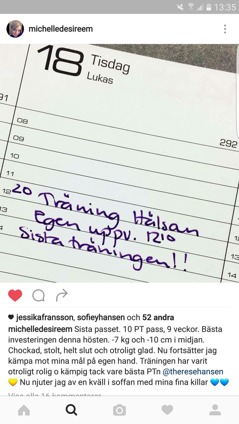 13:35
michelledesireem
18 Tisdag
Lukas
91
292
08
09
10
11
12
20 Träning Hälsan
13
Egen uppv. 1210
Sista träningen!!
14
jessikafransson, sofieyhansen och 52 andra
michelledesireem Sista passet. 10 PT pass, 9 veckor. Bästa
investeringen denna hösten. -7 kg och -10 cm i midjan.
Chockad, stolt, helt slut och otroligt glad. Nu fortsätter jag
kämpa mot mina mål på egen hand. Träningen har varit
otrolig rolig o kämpig tack vare bästa PTn @theresehansen
💛 Nu njuter jag av en kväll i soffan med mina fina killar 💙💙